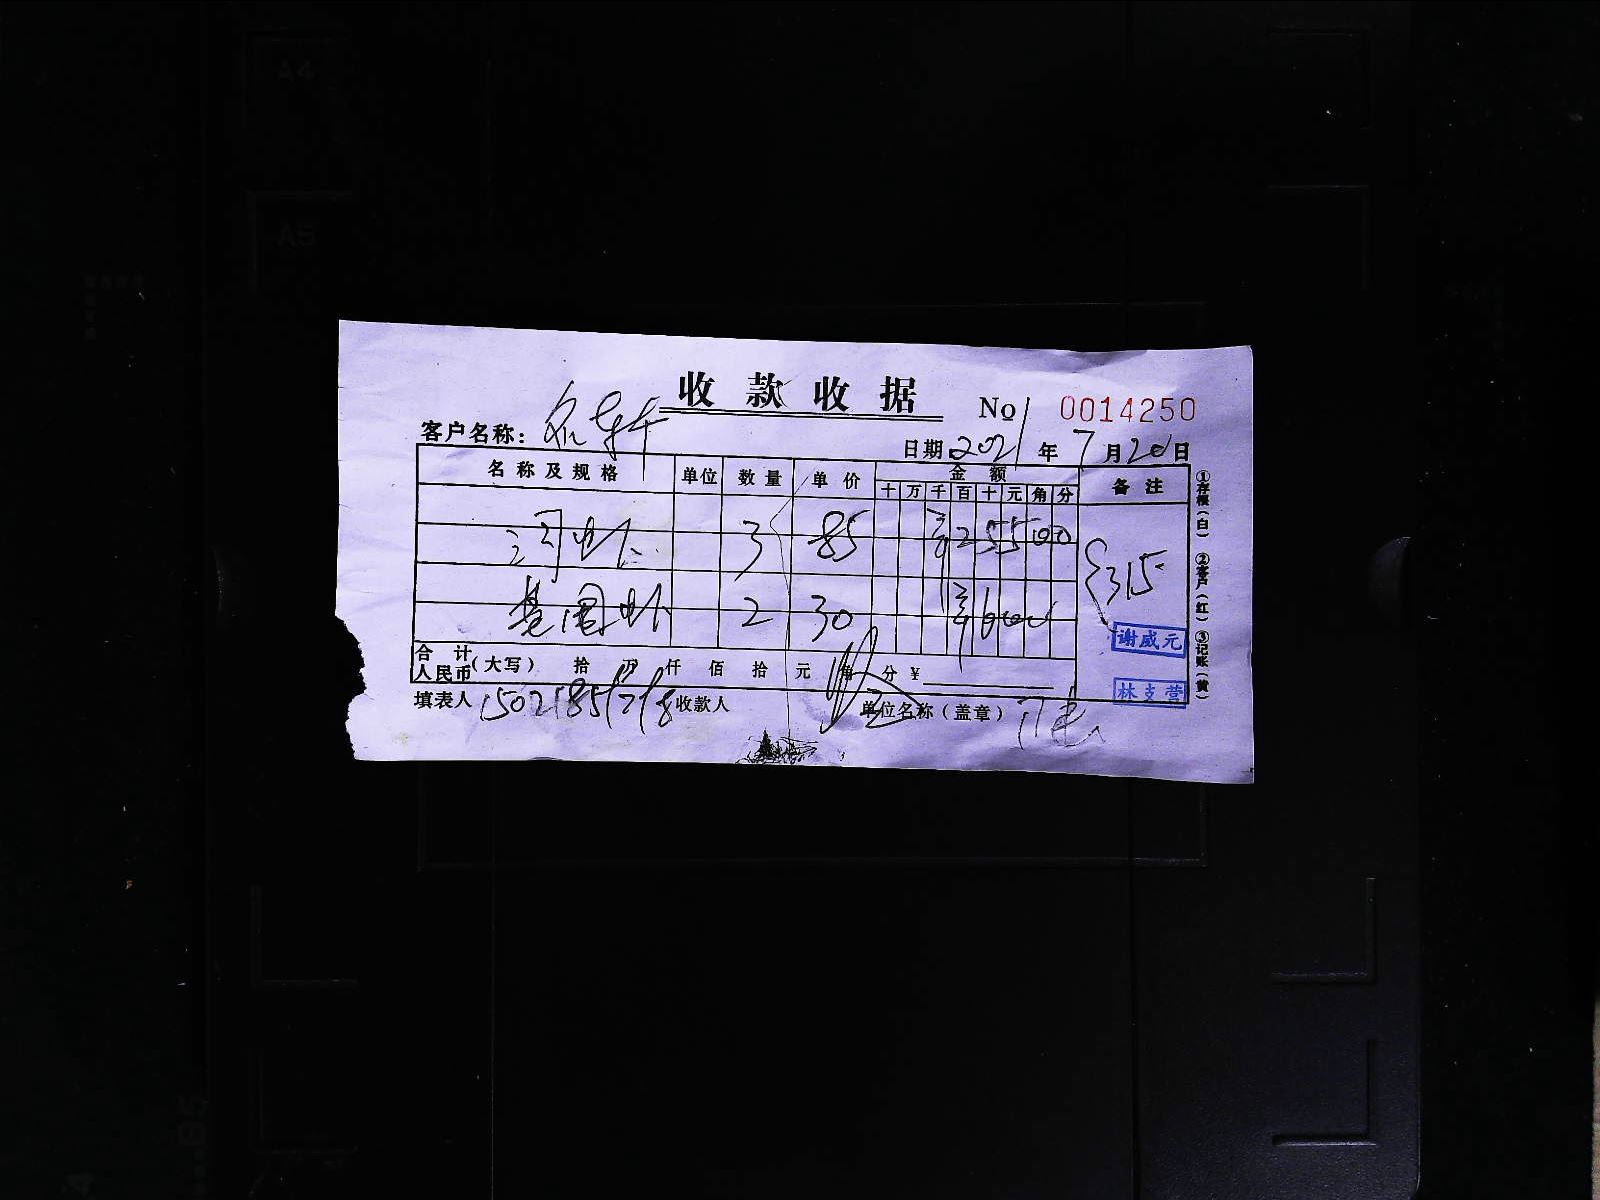 A4
A5
收款收据
No 0014250
客户名称：
日期 2021 年 7 月 20 日
名称及规格 单位 数量 单价 金额 备注
十 万 千 百 十 元 角 分
河虾 3 85 ¥25500
基围虾 2 30 ¥6000
315
谢威元
林支营
合计人民币 （大写） 拾 万 仟 佰 拾 元 角 分 ¥
填表人 15021851718 收款人 单位名称（盖章）
①存根（白） ②客户（红） ③记账（黄）
B5